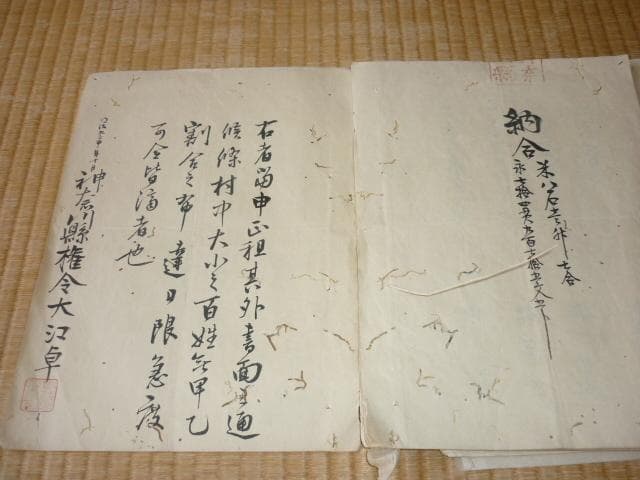 納合 米八石壱斗七合
永七拾四貫九百六拾五文
右者當申正租其外書面之通
候條村中大小之百姓無甲乙
割合之布達日限急度
可令皆濟者也
申
神奈川縣權令大江卓